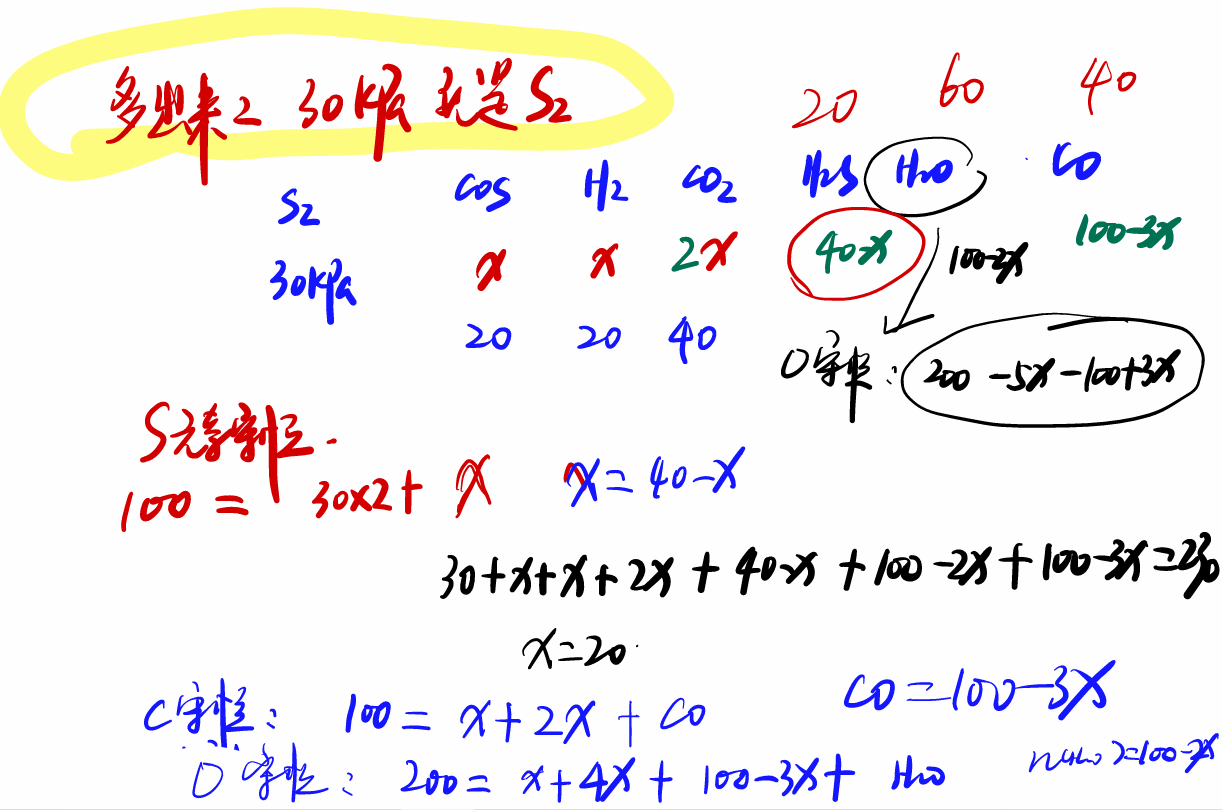 多出来之 30kPa 就是S2
20 60 40
S2 COS H2 CO2 H2S H2O CO
30kPa x x 2x 40-x 100-2x 100-3x
20 20 40
O守恒: 200-5x-100+3x
S元素守恒.
100 = 30×2+ x x=40-x
30+x+x+2x+40-x+100-2x+100-3x=230
x=20
C守恒: 100 = x+2x+CO CO=100-3x
O守恒: 200= x+4x+100-3x+ H2O n(H2O)=100-2x